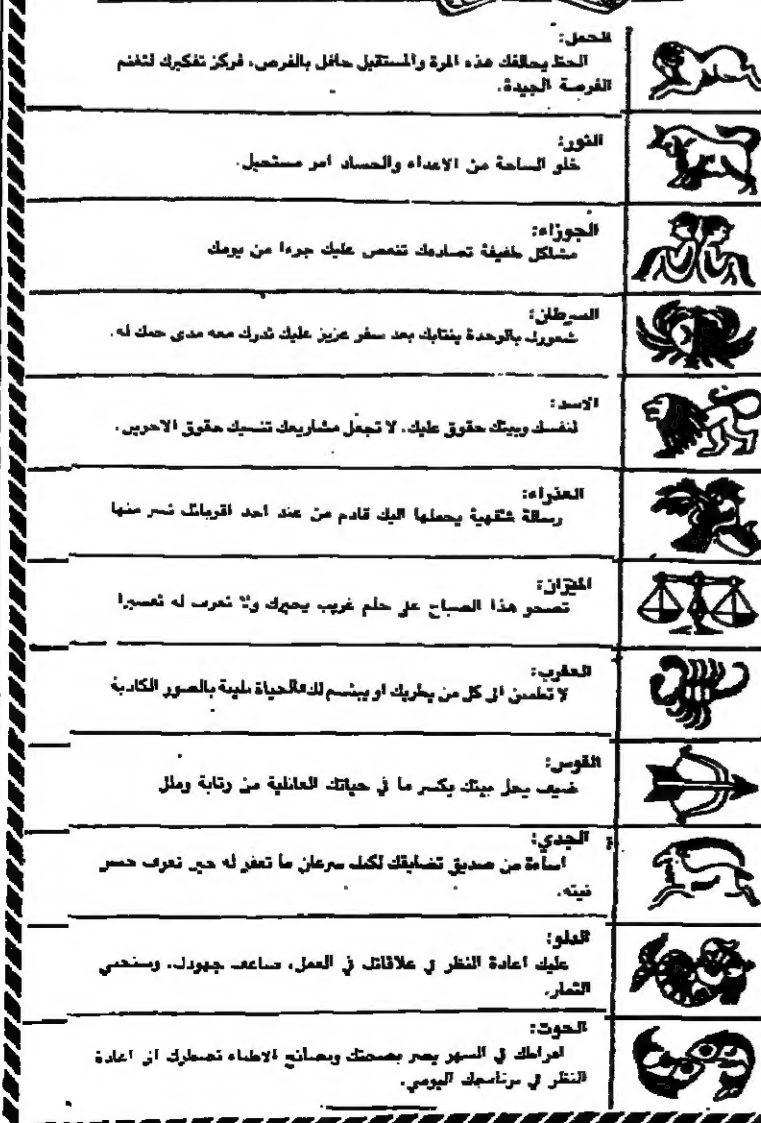 الحمل:
الحظ يحالفك هذه المرة والمستقبل حافل بالفرص، فركز تفكيرك لتغنم
الفرصة الجيدة.
الثور:
خلو الساحة من الاعداء والحساد امر مستحيل.
الجوزاء:
مشاكل طفيفة تصادمك تنغص عليك جزءا من يومك
السرطان:
شعورك بالوحدة ينتابك بعد سفر عزيز عليك تدرك معه مدى حبك له.
الاسد:
لنفسك وبيتك حقوق عليك. لا تجعل مشاريعك تنسيك حقوق الاخرين.
العذراء:
رسالة شفهية يحملها اليك قادم من عند احد اقربائك تسر منها
الميزان:
تصحو هذا الصباح على حلم غريب يحيرك ولا تعرف له تفسيرا
العقرب:
لا تطمئن الى كل من يطريك او يبتسم لك فالحياة مليئة بالصور الكاذبة
القوس:
ضيف يحل بيتك يكسر ما في حياتك العائلية من رتابة وملل
الجدي:
اساءة من صديق تضايقك لكنك سرعان ما تغفر له حين تعرف حسن
نيته.
الدلو:
عليك اعادة النظر في علاقاتك في العمل، ضاعف جهودك. وستجني
الثمار.
الحوت:
افراطك في السهر يضر بصحتك ونصائح الاطباء تضطرك الى اعادة
النظر في برنامجك اليومي.